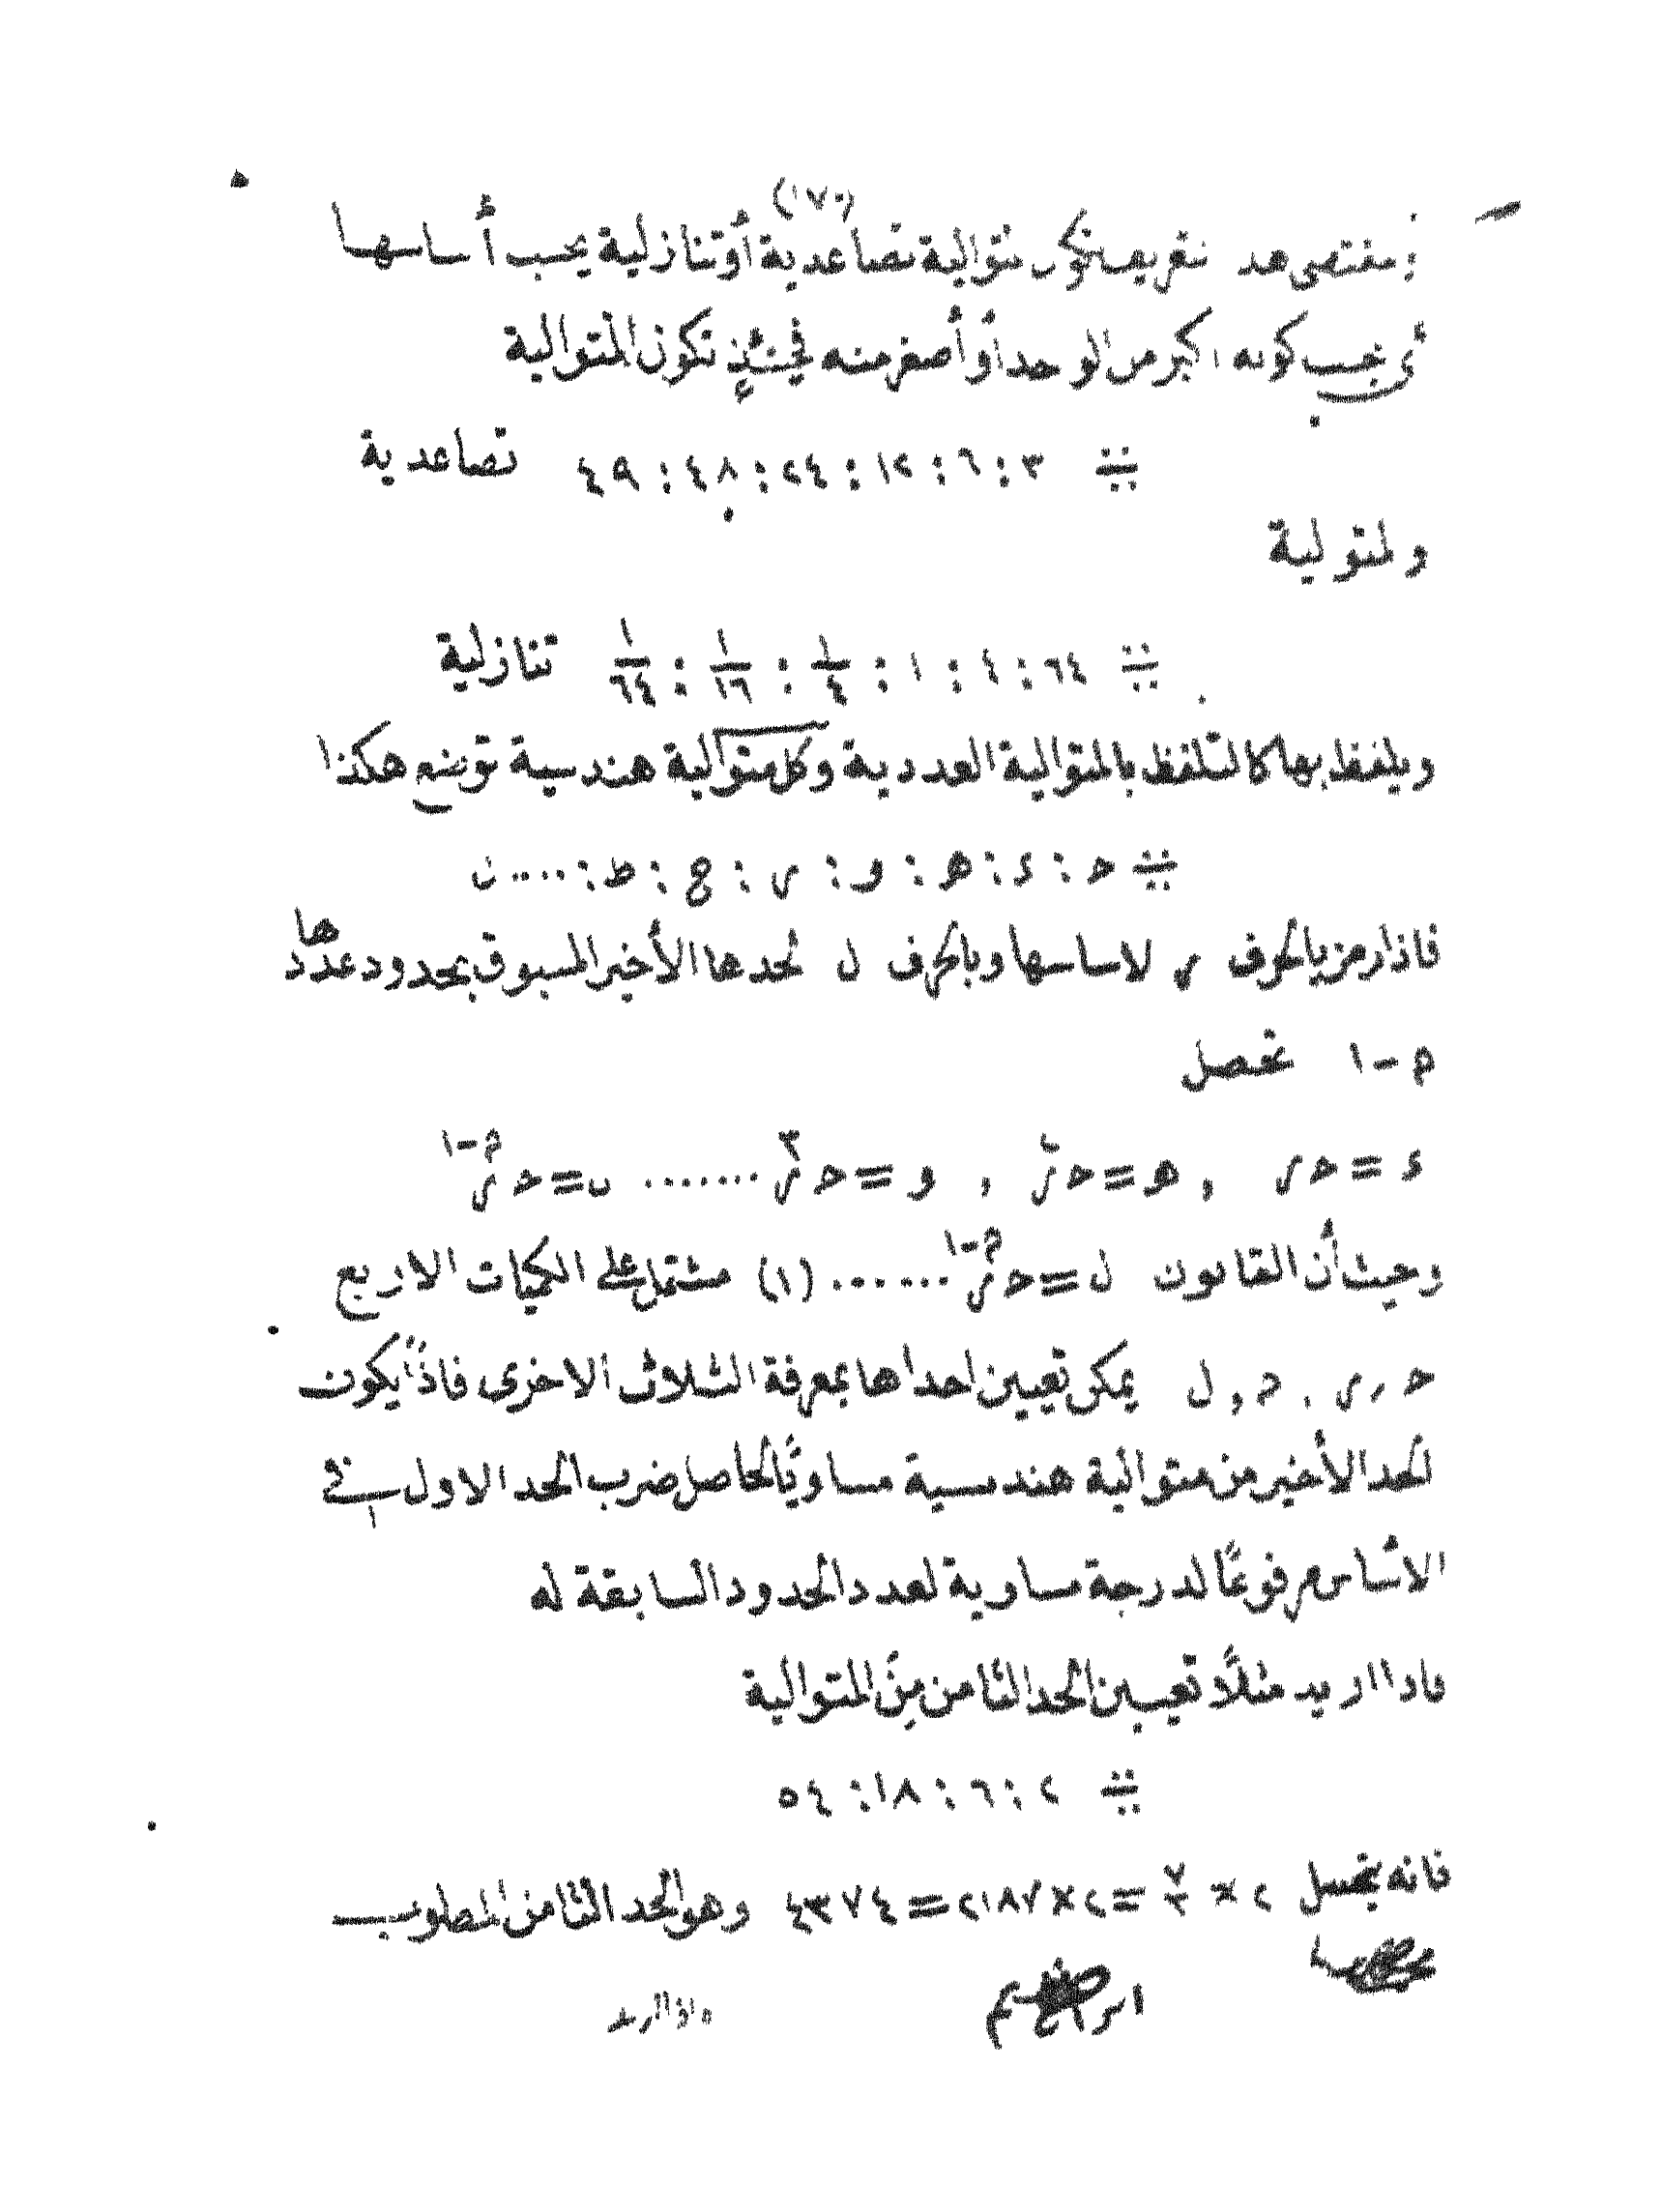 (١٧٠)
بمقتضى هد تعريفها تكون متوالية تصاعدية أو تنازلية يحسب أساسها
أي بحسب كونه اكبر من الوحد أو أصغر منه فحينئذٍ تكون المتوالية
∺ ٣ : ٦ : ١٢ : ٢٤ : ٤٨ : ٤٩ تصاعدية
ولمتولية
∺ ٦٤ : ٤ : ١ : ١/٤ : ١/١٦ : ١/٦٤ تنازلية
ويلفظ بها كالتلفظ بالمتوالية العددية وكل متوالية هندسية توضع هكذا
∺ حـ : ء : هـ : و : ر : ح : ط : ..... ن
فاذا رمز بالحرف ر لاساسها وبالحرف ل لحدها الأخير المسبوق بحدود عددها
م - ١ تحصل
ء = حر , هـ = حر٢ , و = حر٣ ....... ل = حر^م-١
وحيث أن القانون ل = حر^م-١ ...... (١) مشتمل على الكميات الاربع
حـ , ر , م , ل يمكن تعيين احداها بمعرفة الثلاث الاخرى فاذًا يكون
الحد الأخير من متوالية هندسية مساويًا لحاصل ضرب الحد الاول في
الأساس مرفوعًا لدرجة مساوية لعدد الحدود السابقة له
فاذا اريد مثلًا تعيين الحد الثامن مِنَ المتوالية
∺ ٢ : ٦ : ١٨ : ٥٤
فانه يتحصل ٢ × ٣^٧ = ٢ × ٢١٨٧ = ٤٣٧٤ وهو الحد الثامن المطلوب
واذا اريد